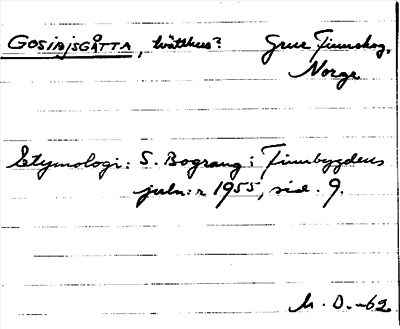 GOSIAJSGÅTTA, tvätthus? Grue Finnskog,
Norge
Etymologi: S. Bograng i Finnbygdens
juln:r 1955, sid. 9.
M. O. -62